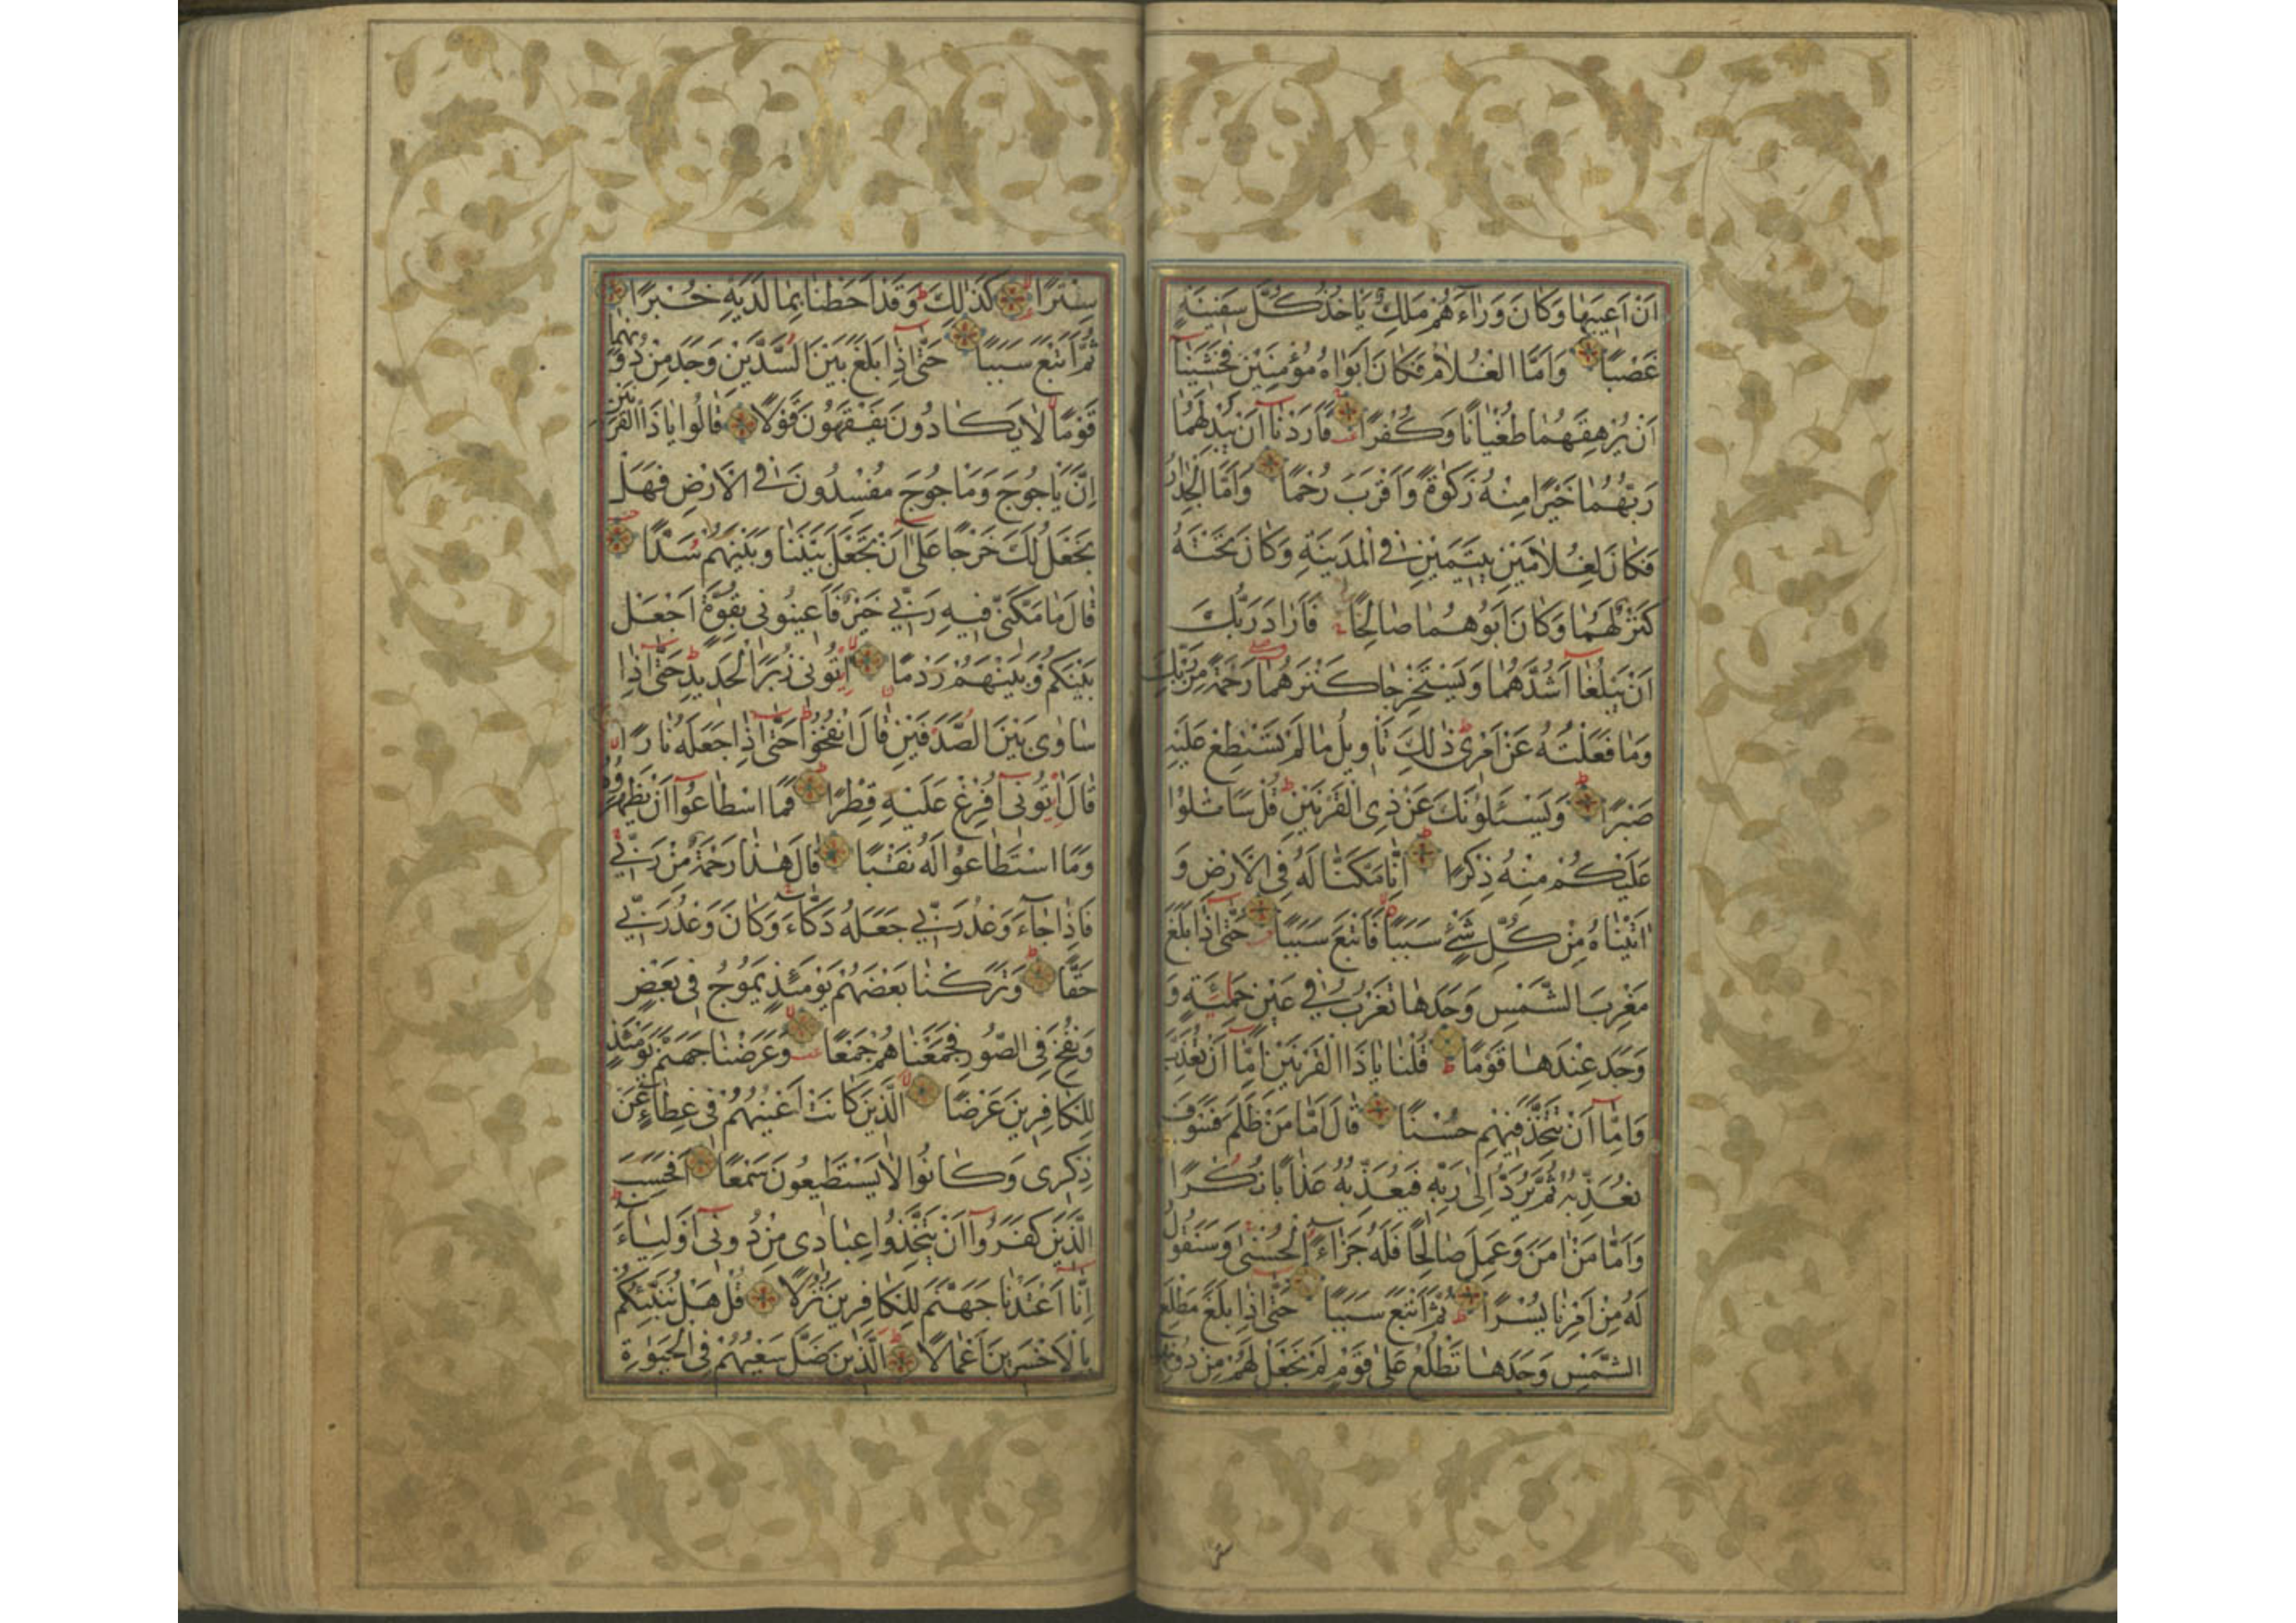 اَنْ اَعِيبَهَا وَكَانَ وَرَاءَهُمْ مَلِكٌ يَأْخُذُ كُلَّ سَفِينَةٍ
غَصْبًا وَاَمَّا الْغُلَامُ فَكَانَ اَبَوَاهُ مُؤْمِنَيْنِ فَخَشِينَا
اَنْ يُرْهِقَهُمَا طُغْيَانًا وَكُفْرًا فَاَرَدْنَا اَنْ يُبْدِلَهُمَا
رَبُّهُمَا خَيْرًا مِنْهُ زَكٰوةً وَاَقْرَبَ رُحْمًا وَاَمَّا الْجِدَارُ
فَكَانَ لِغُلَامَيْنِ يَتِيمَيْنِ فِي الْمَدِينَةِ وَكَانَ تَحْتَهُ
كَنْزٌ لَهُمَا وَكَانَ اَبُوهُمَا صَالِحًا فَاَرَادَ رَبُّكَ
اَنْ يَبْلُغَا اَشُدَّهُمَا وَيَسْتَخْرِجَا كَنْزَهُمَا رَحْمَةً مِنْ رَبِّكَ
وَمَا فَعَلْتُهُ عَنْ اَمْرِي ذٰلِكَ تَأْوِيلُ مَا لَمْ تَسْطِعْ عَلَيْهِ
صَبْرًا وَيَسْـَٔلُونَكَ عَنْ ذِي الْقَرْنَيْنِ قُلْ سَاَتْلُوا
عَلَيْكُمْ مِنْهُ ذِكْرًا اِنَّا مَكَّنَّا لَهُ فِي الْاَرْضِ وَ
اٰتَيْنَاهُ مِنْ كُلِّ شَيْءٍ سَبَبًا فَاَتْبَعَ سَبَبًا حَتّٰى اِذَا بَلَغَ
مَغْرِبَ الشَّمْسِ وَجَدَهَا تَغْرُبُ فِي عَيْنٍ حَمِئَةٍ وَ
وَجَدَ عِنْدَهَا قَوْمًا قُلْنَا يَا ذَا الْقَرْنَيْنِ اِمَّا اَنْ تُعَذِّبَ
وَاِمَّا اَنْ تَتَّخِذَ فِيهِمْ حُسْنًا قَالَ اَمَّا مَنْ ظَلَمَ فَسَوْفَ
نُعَذِّبُهُ ثُمَّ يُرَدُّ اِلٰى رَبِّهِ فَيُعَذِّبُهُ عَذَابًا نُكْرًا
وَاَمَّا مَنْ اٰمَنَ وَعَمِلَ صَالِحًا فَلَهُ جَزَاءً الْحُسْنٰى وَسَنَقُولُ
لَهُ مِنْ اَمْرِنَا يُسْرًا ثُمَّ اَتْبَعَ سَبَبًا حَتّٰى اِذَا بَلَغَ مَطْلِعَ
الشَّمْسِ وَجَدَهَا تَطْلُعُ عَلٰى قَوْمٍ لَمْ نَجْعَلْ لَهُمْ مِنْ دُونِهَا
سِتْرًا كَذٰلِكَ وَقَدْ اَحَطْنَا بِمَا لَدَيْهِ خُبْرًا
ثُمَّ اَتْبَعَ سَبَبًا حَتّٰى اِذَا بَلَغَ بَيْنَ السَّدَّيْنِ وَجَدَ مِنْ دُونِهِمَا
قَوْمًا لَا يَكَادُونَ يَفْقَهُونَ قَوْلًا قَالُوا يَا ذَا الْقَرْنَيْنِ
اِنَّ يَأْجُوجَ وَمَأْجُوجَ مُفْسِدُونَ فِي الْاَرْضِ فَهَلْ
نَجْعَلُ لَكَ خَرْجًا عَلٰى اَنْ تَجْعَلَ بَيْنَنَا وَبَيْنَهُمْ سَدًّا
قَالَ مَا مَكَّنِّي فِيهِ رَبِّي خَيْرٌ فَاَعِينُونِي بِقُوَّةٍ اَجْعَلْ
بَيْنَكُمْ وَبَيْنَهُمْ رَدْمًا اٰتُونِي زُبَرَ الْحَدِيدِ حَتّٰى اِذَا
سَاوٰى بَيْنَ الصَّدَفَيْنِ قَالَ انْفُخُوا حَتّٰى اِذَا جَعَلَهُ نَارًا
قَالَ اٰتُونِي اُفْرِغْ عَلَيْهِ قِطْرًا فَمَا اسْطَاعُوا اَنْ يَظْهَرُوهُ
وَمَا اسْتَطَاعُوا لَهُ نَقْبًا قَالَ هٰذَا رَحْمَةٌ مِنْ رَبِّي
فَاِذَا جَاءَ وَعْدُ رَبِّي جَعَلَهُ دَكَّاءَ وَكَانَ وَعْدُ رَبِّي
حَقًّا وَتَرَكْنَا بَعْضَهُمْ يَوْمَئِذٍ يَمُوجُ فِي بَعْضٍ
وَنُفِخَ فِي الصُّورِ فَجَمَعْنَاهُمْ جَمْعًا وَعَرَضْنَا جَهَنَّمَ يَوْمَئِذٍ
لِلْكَافِرِينَ عَرْضًا اَلَّذِينَ كَانَتْ اَعْيُنُهُمْ فِي غِطَاءٍ عَنْ
ذِكْرِي وَكَانُوا لَا يَسْتَطِيعُونَ سَمْعًا اَفَحَسِبَ
الَّذِينَ كَفَرُوا اَنْ يَتَّخِذُوا عِبَادِي مِنْ دُونِي اَوْلِيَاءَ
اِنَّا اَعْتَدْنَا جَهَنَّمَ لِلْكَافِرِينَ نُزُلًا قُلْ هَلْ نُنَبِّئُكُمْ
بِالْاَخْسَرِينَ اَعْمَالًا اَلَّذِينَ ضَلَّ سَعْيُهُمْ فِي الْحَيٰوةِ